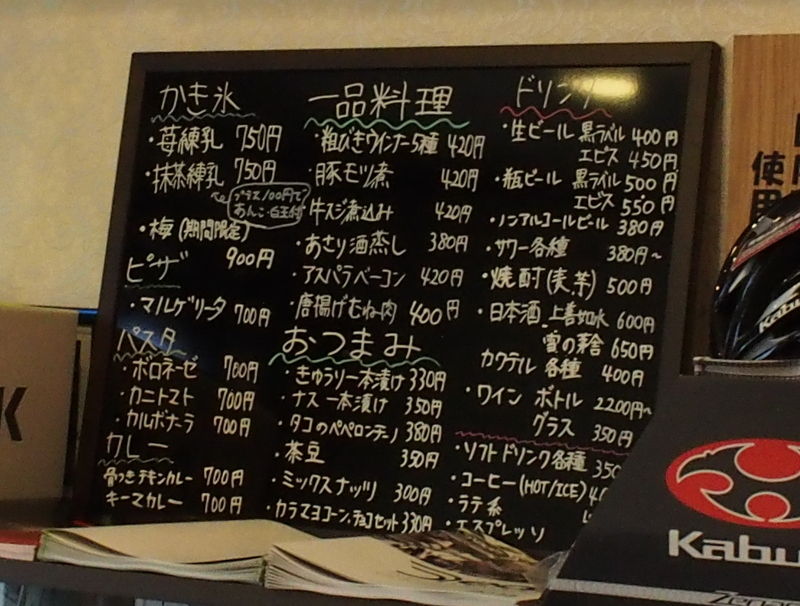 かき氷
・苺練乳 750円
・抹茶練乳 750円
プラス100円で
あんこ・白玉付
・梅(期間限定)
900円
ピザ
・マルゲリータ 700円
パスタ
・ボロネーゼ 700円
・カニトマト 700円
・カルボナーラ 700円
カレー
骨つきチキンカレー 700円
キーマカレー 700円
一品料理
・粗びきウインナー5種 420円
・豚モツ煮 420円
・牛スジ煮込み 420円
・あさり酒蒸し 380円
・アスパラベーコン 420円
・唐揚げむね肉 400円
おつまみ
・きゅうり一本漬け 330円
・ナス一本漬け 350円
・タコのペペロンチーノ 380円
・茶豆 350円
・ミックスナッツ 300円
・カラマヨコーン、チョコセット 330円
ドリンク
・生ビール 黒ラベル 400円
エビス 450円
・瓶ビール 黒ラベル 500円
エビス 550円
・ノンアルコールビール 380円
・サワー各種 380円~
・焼酎(麦、芋) 500円
・日本酒 上善如水 600円
雪の茅舎 650円
カクテル 各種 400円
・ワイン ボトル 2200円~
グラス 350円
・ソフトドリンク各種 350
・コーヒー(HOT/ICE)
・ラテ系
・エスプレッソ
使
用
K
Kabu
Kabu